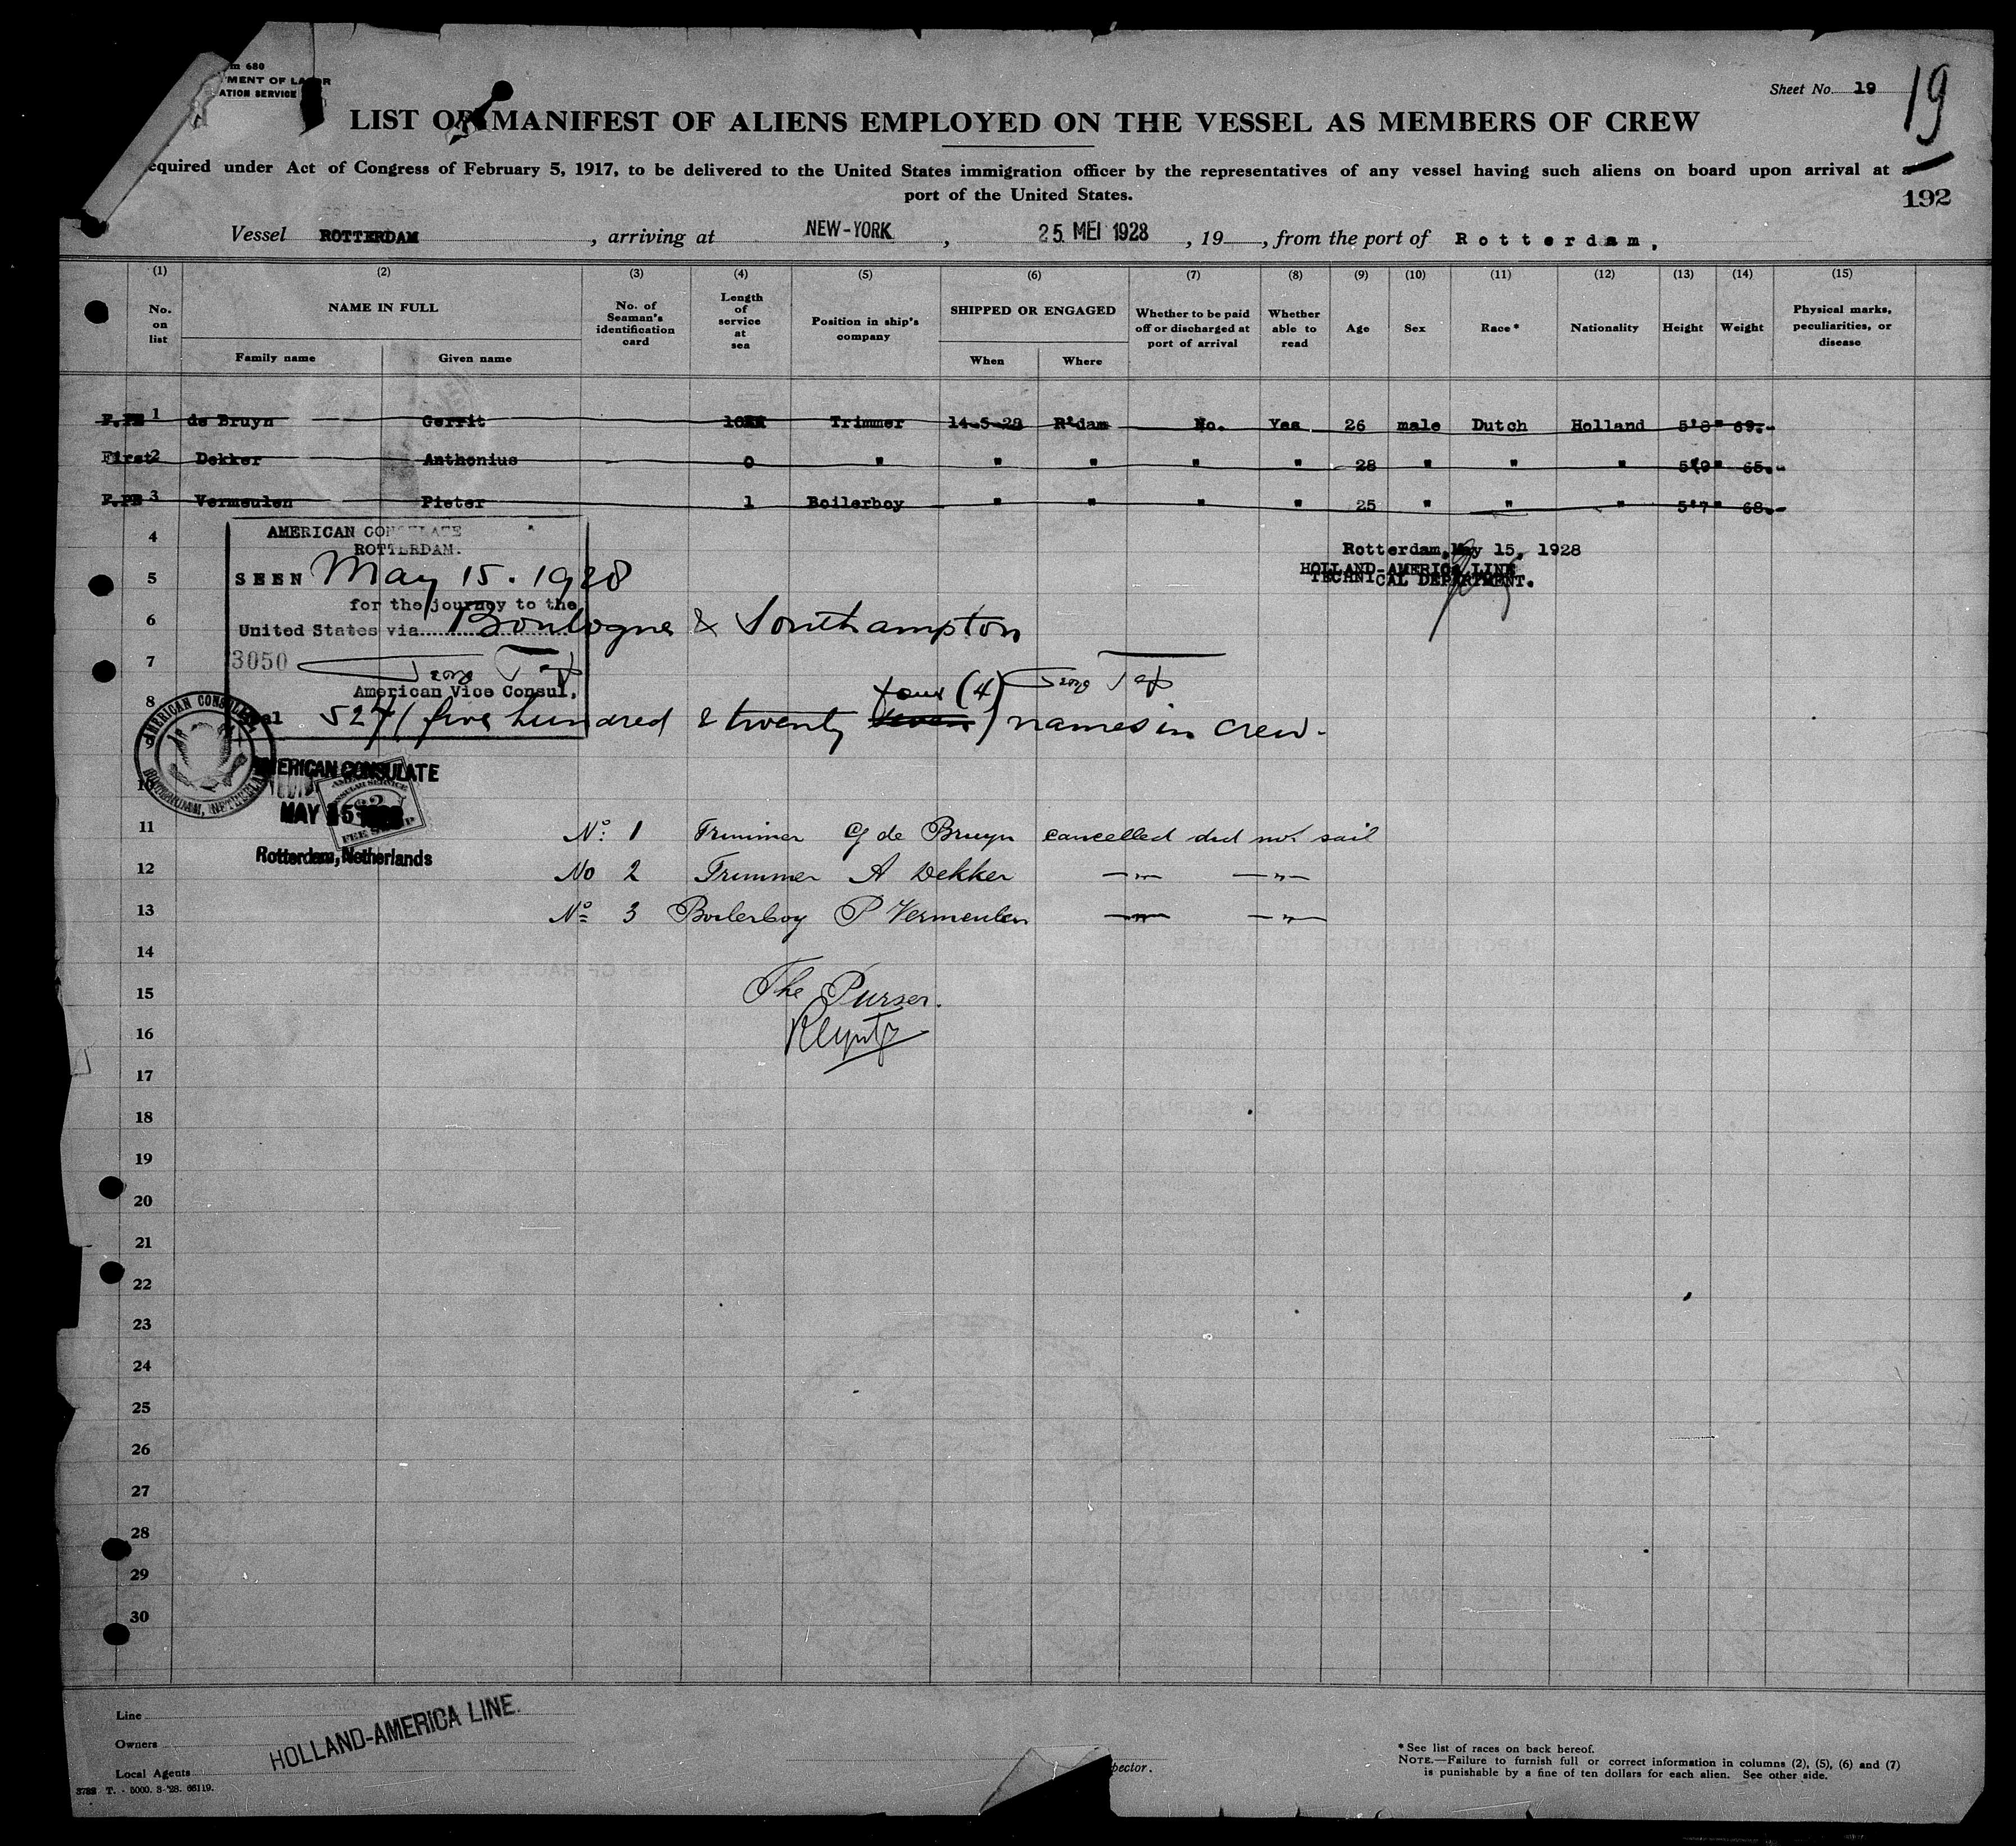 m 680
TMENT OF LABOR
ATION SERVICE
Sheet No. 19
19
LIST OR MANIFEST OF ALIENS EMPLOYED ON THE VESSEL AS MEMBERS OF CREW
equired under Act of Congress of February 5, 1917, to be delivered to the United States immigration officer by the representatives of any vessel having such aliens on board upon arrival at a
port of the United States.
192
Vessel ROTTERDAM, arriving at NEW-YORK, 25 MEI 1928, 19, from the port of Rotterdam.
(1) (2) (3) (4) (5) (6) (7) (8) (9) (10) (11) (12) (13) (14) (15)
No. on list
NAME IN FULL
Family name Given name
No. of Seaman's identification card
Length of service at sea
Position in ship's company
SHIPPED OR ENGAGED
When Where
Whether to be paid off or discharged at port of arrival
Whether able to read
Age
Sex
Race*
Nationality
Height
Weight
Physical marks, peculiarities, or disease
1 de Bruyn Gerrit Trimmer 14-5-28 R'dam No. Yes 26 male Dutch Holland 5'8" 69.-
First 2 Dekker Anthonius 0 " " " " " 28 " " " 5'9" 65.-
3 Vermeulen Pieter 1 Boilerboy " " " " 25 " " " 5'7" 68.-
4
AMERICAN CONSULATE
ROTTERDAM.
Rotterdam, May 15, 1928
HOLLAND-AMERICA LINE
TECHNICAL DEPARTMENT.
5
SEEN May 15. 1928
for the journey to the
6
United States via Boulogne & Southampton
7
3050
American Vice Consul.
8
four (4)
Seal 527 (five hundred & twenty seven) names in crew.
AMERICAN CONSULATE
ROTTERDAM, NETHERLANDS
AMERICAN CONSULATE
10
MAY 15 1928
Rotterdam, Netherlands
11 No: 1 Trimmer G de Bruyn cancelled did not sail
12 No 2 Trimmer A Dekker —"— —"—
13 No 3 Boilerboy P Vermeulen —"— —"—
14
15 The Purser.
16
17
18
19
20
21
22
23
24
25
26
27
28
29
30
Line
Owners
Local Agents
HOLLAND-AMERICA LINE.
3782 T. - 5000. 3-'28. 66119.
pector.
*See list of races on back hereof.
NOTE.—Failure to furnish full or correct information in columns (2), (5), (6) and (7)
is punishable by a fine of ten dollars for each alien. See other side.